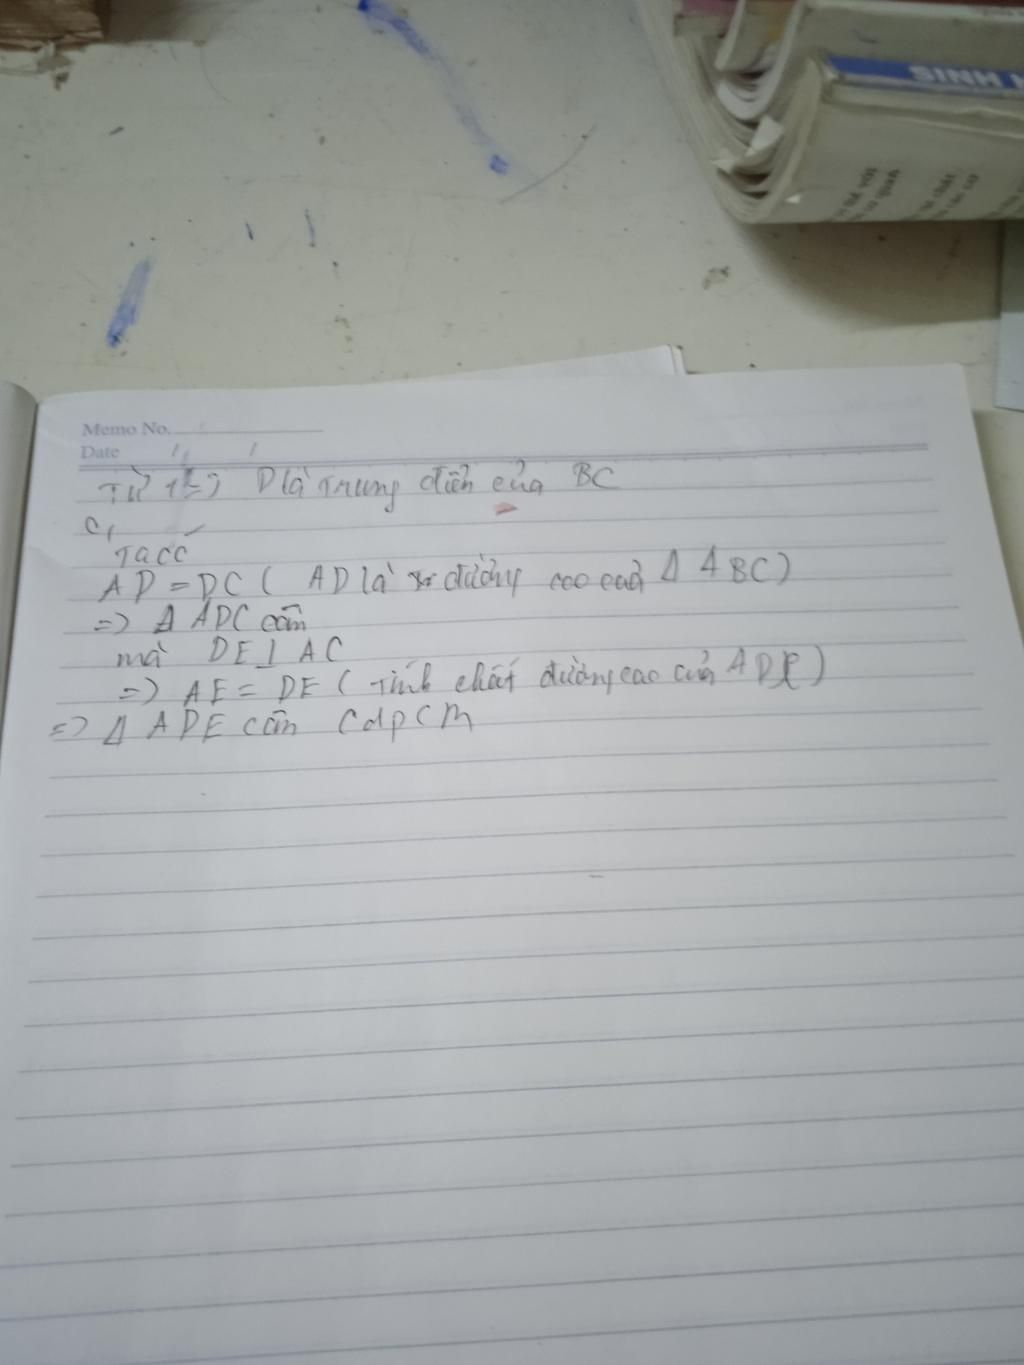 SINH
thể với
cơ quan
chất
các cơ
Memo No.
Date
Từ 1 => D là Trung điểm của BC
C,
Ta có
AD = DC ( AD là đường cao của Δ ABC )
=> Δ ADC cân
mà DE ⊥ AC
=> AE = DE ( Tính chất đường cao của ADC )
=> Δ ADE cân CdpCM